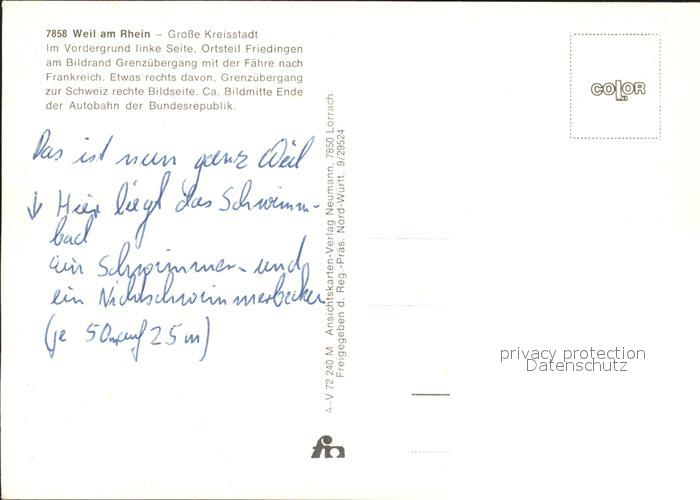 7858 Weil am Rhein – Große Kreisstadt
Im Vordergrund linke Seite, Ortsteil Friedingen
am Bildrand Grenzübergang mit der Fähre nach
Frankreich. Etwas rechts davon, Grenzübergang
zur Schweiz rechte Bildseite. Ca. Bildmitte Ende
der Autobahn der Bundesrepublik.
Das ist nun ganz Weil
↓ Hier liegt das Schwimm-
bad
ein Schwimmer- und
ein Nichtschwimmerbecken
(je 50m auf 25 m)
A–V 72 240 M Ansichtskarten-Verlag Neumann, 7850 Lörrach
Freigegeben d. Reg.-Präs. Nord-Württ. 9/29524
COLOR
privacy protection
Datenschutz